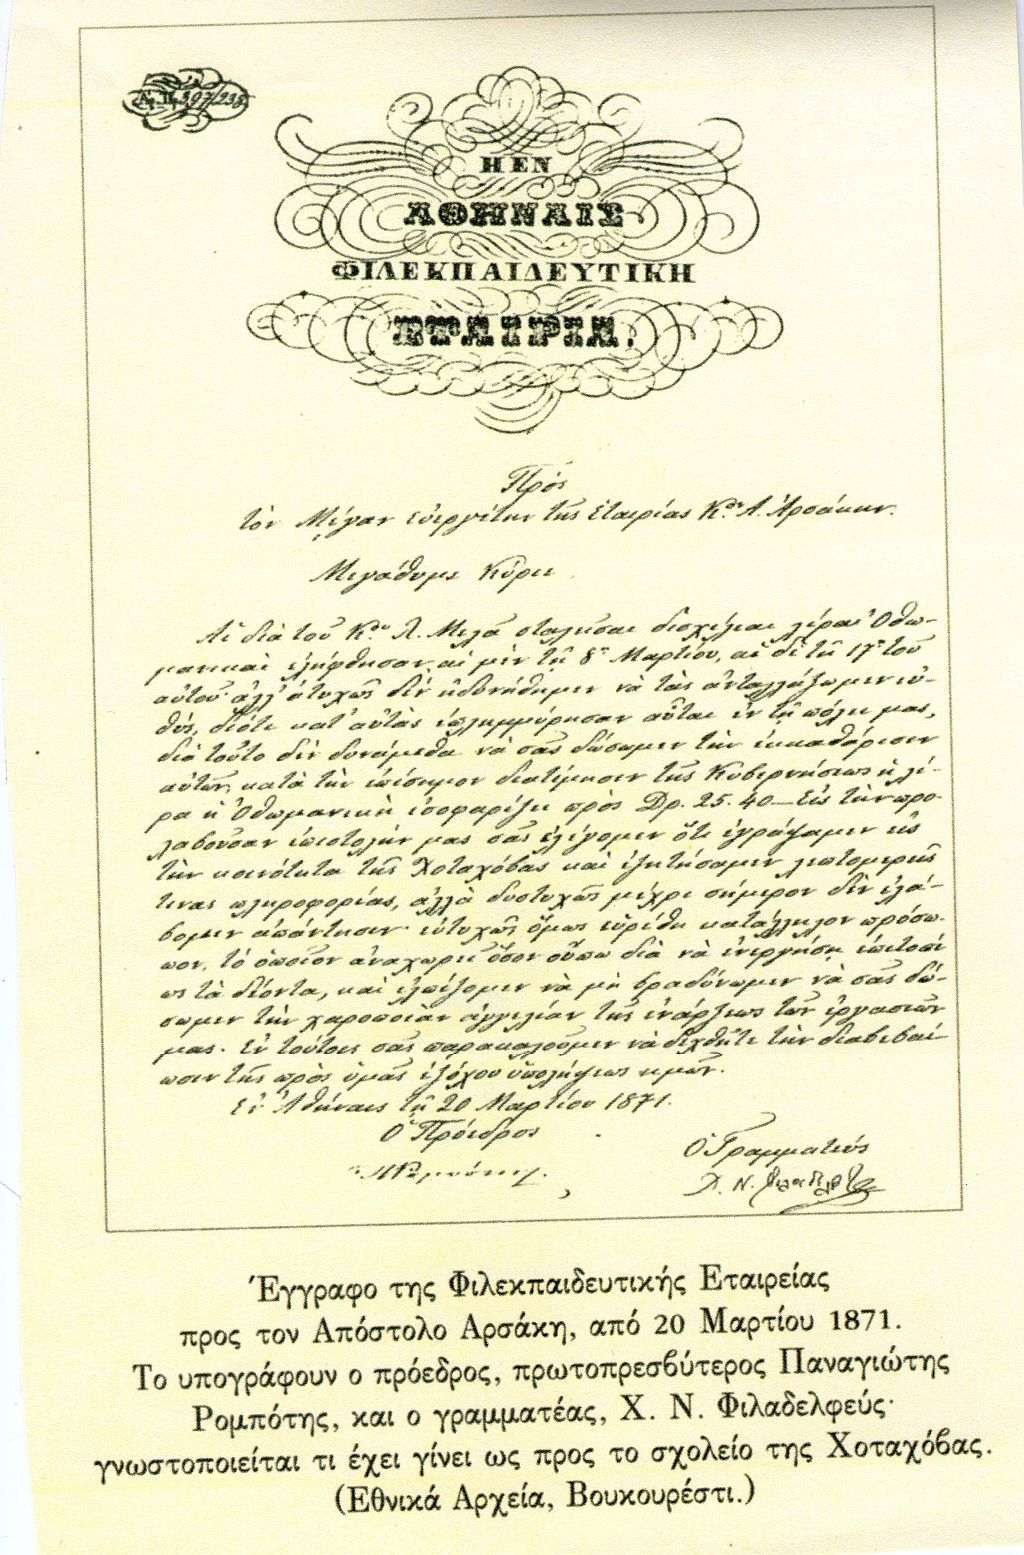 Α. Π. 397/238
Η ΕΝ
ΑΘΗΝΑΙΣ
ΦΙΛΕΚΠΑΙΔΕΥΤΙΚΗ
ΕΤΑΙΡΙΑ.
Πρὸς
τὸν Μέγαν εὐεργέτην τῆς Ἑταιρίας Κον Α. Ἀρσάκην.
Μεγάθυμε Κύριε
Αἱ διὰ τοῦ Κου Λ. Μελᾶ σταλεῖσαι δισχίλιαι λίραι Ὀθω-
μανικαὶ ἐλήφθησαν, αἱ μὲν τῇ 8ῃ Μαρτίου, αἱ δὲ τῇ 17ῃ τοῦ
αὐτοῦ· ἀλλ' ἀτυχῶς δὲν ἠδυνήθημεν νὰ τὰς ἀνταλλάξωμεν εὐ-
θύς, διότι κατ' αὐτὰς ἐπλημμύρησαν αὗται ἐν τῇ πόλει μας,
διὰ τοῦτο δὲν δυνάμεθα νὰ σᾶς δώσωμεν τὴν ἐκκαθάρισιν
αὐτῶν, κατὰ τὴν ἐπίσημον διατίμησιν τῆς Κυβερνήσεως ἡ λί-
ρα ἡ Ὀθωμανικὴ ἰσοφαρίζει πρὸς Δρ. 25.40 — Εἰς τὴν προ-
λαβοῦσαν ἐπιστολήν μας σᾶς ἐλέγομεν ὅτι ἐγράψαμεν εἰς
τὴν κοινότητα τῆς Χοταχόβας καὶ ἐζητήσαμεν λεπτομερεῖς
τινας πληροφορίας, ἀλλὰ δυστυχῶς μέχρι σήμερον δὲν ἐλά-
βομεν ἀπάντησιν· εὐτυχῶς ὅμως εὑρέθη κατάλληλον πρόσω-
πον, τὸ ὁποῖον ἀναχωρεῖ ὅσον οὔπω διὰ νὰ ἐνεργήσῃ ἐπιτοπί
ως τὰ δέοντα, καὶ ἐλπίζομεν νὰ μὴ βραδύνωμεν νὰ σᾶς δώ-
σωμεν τὴν χαροποιὰν ἀγγελίαν τῆς ἐνάρξεως τῶν ἐργασιῶν
μας. Ἐν τούτοις σᾶς παρακαλοῦμεν νὰ δεχθῆτε τὴν διαβεβαί-
ωσιν τῆς πρὸς ὑμᾶς ἐξόχου ὑπολήψεως ἡμῶν.
Ἐν Ἀθήναις τῇ 20 Μαρτίου 1871.
Ὁ Πρόεδρος
Ὁ Γραμματεὺς
Χ. Ν. Φιλαδελφεύς
Έγγραφο της Φιλεκπαιδευτικής Εταιρείας
προς τον Απόστολο Αρσάκη, από 20 Μαρτίου 1871.
Το υπογράφουν ο πρόεδρος, πρωτοπρεσβύτερος Παναγιώτης
Ρομπότης, και ο γραμματέας, Χ. Ν. Φιλαδελφεύς·
γνωστοποιείται τι έχει γίνει ως προς το σχολείο της Χοταχόβας.
(Εθνικά Αρχεία, Βουκουρέστι.)